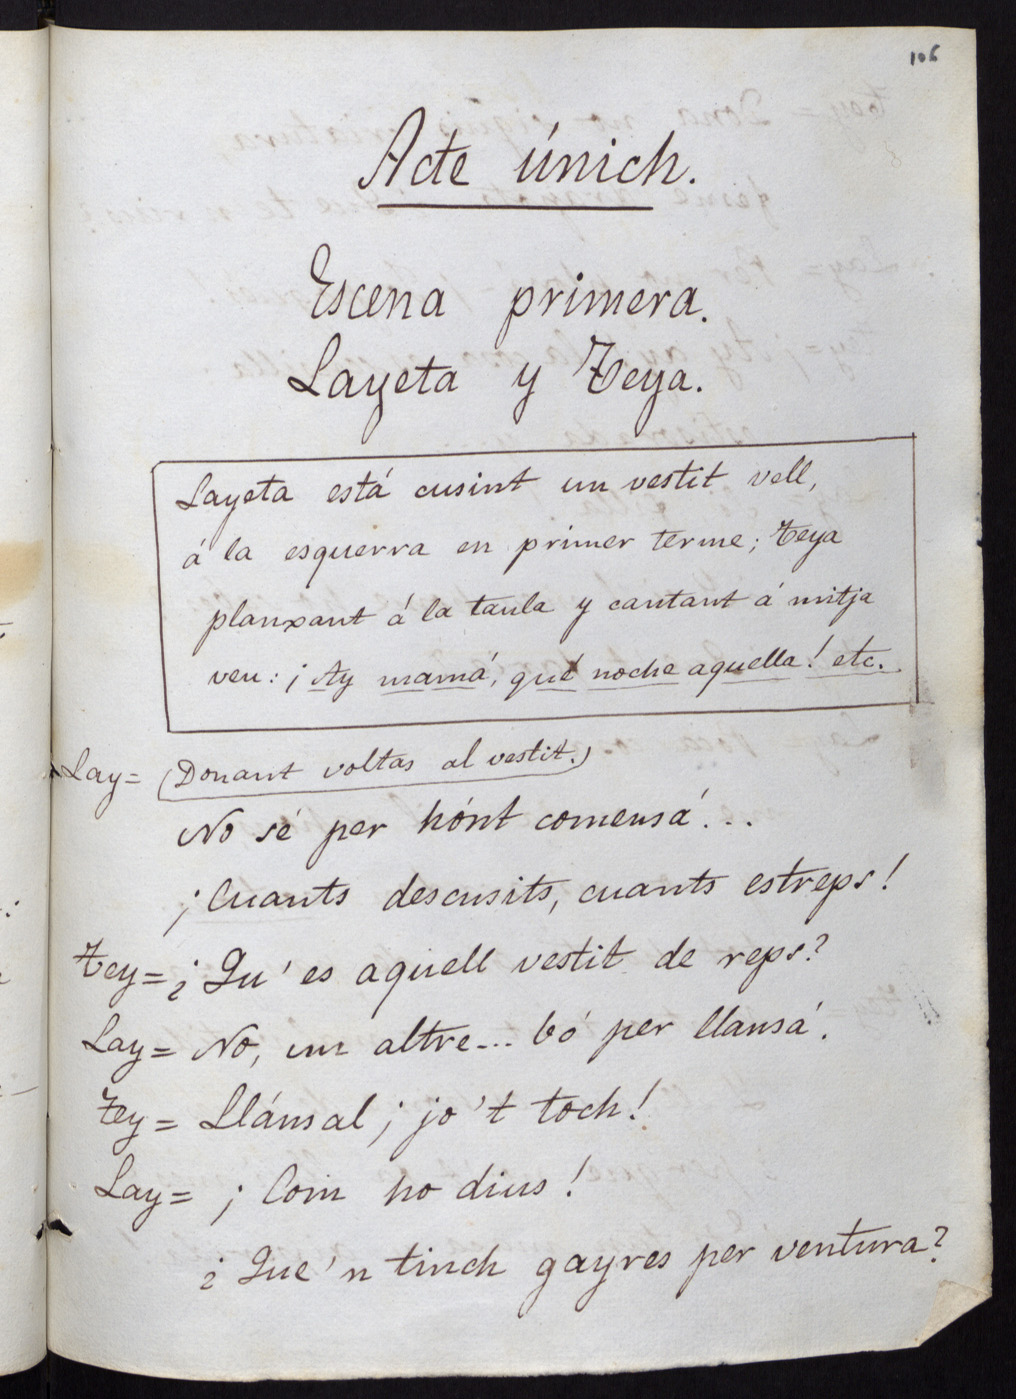 106
Acte únich.
Escena primera.
Layeta y Teya.
Layeta está cusint un vestit vell,
á la esquerra en primer terme; Teya
planxant á la taula y cantant á mitja
veu: ¡Ay mamá, qué noche aquella! etc.
Lay= (Donant voltas al vestit.)
No sé per hónt comensá...
¡Cuants descusits, cuants estreps!
Tey= ¿Qu' es aquell vestit de reps?
Lay= No, un altre... bó per llansá.
Tey= Llánsal; jo 't toch!
Lay= ¡Com ho dius!
¿Que 'n tinch gayres per ventura?